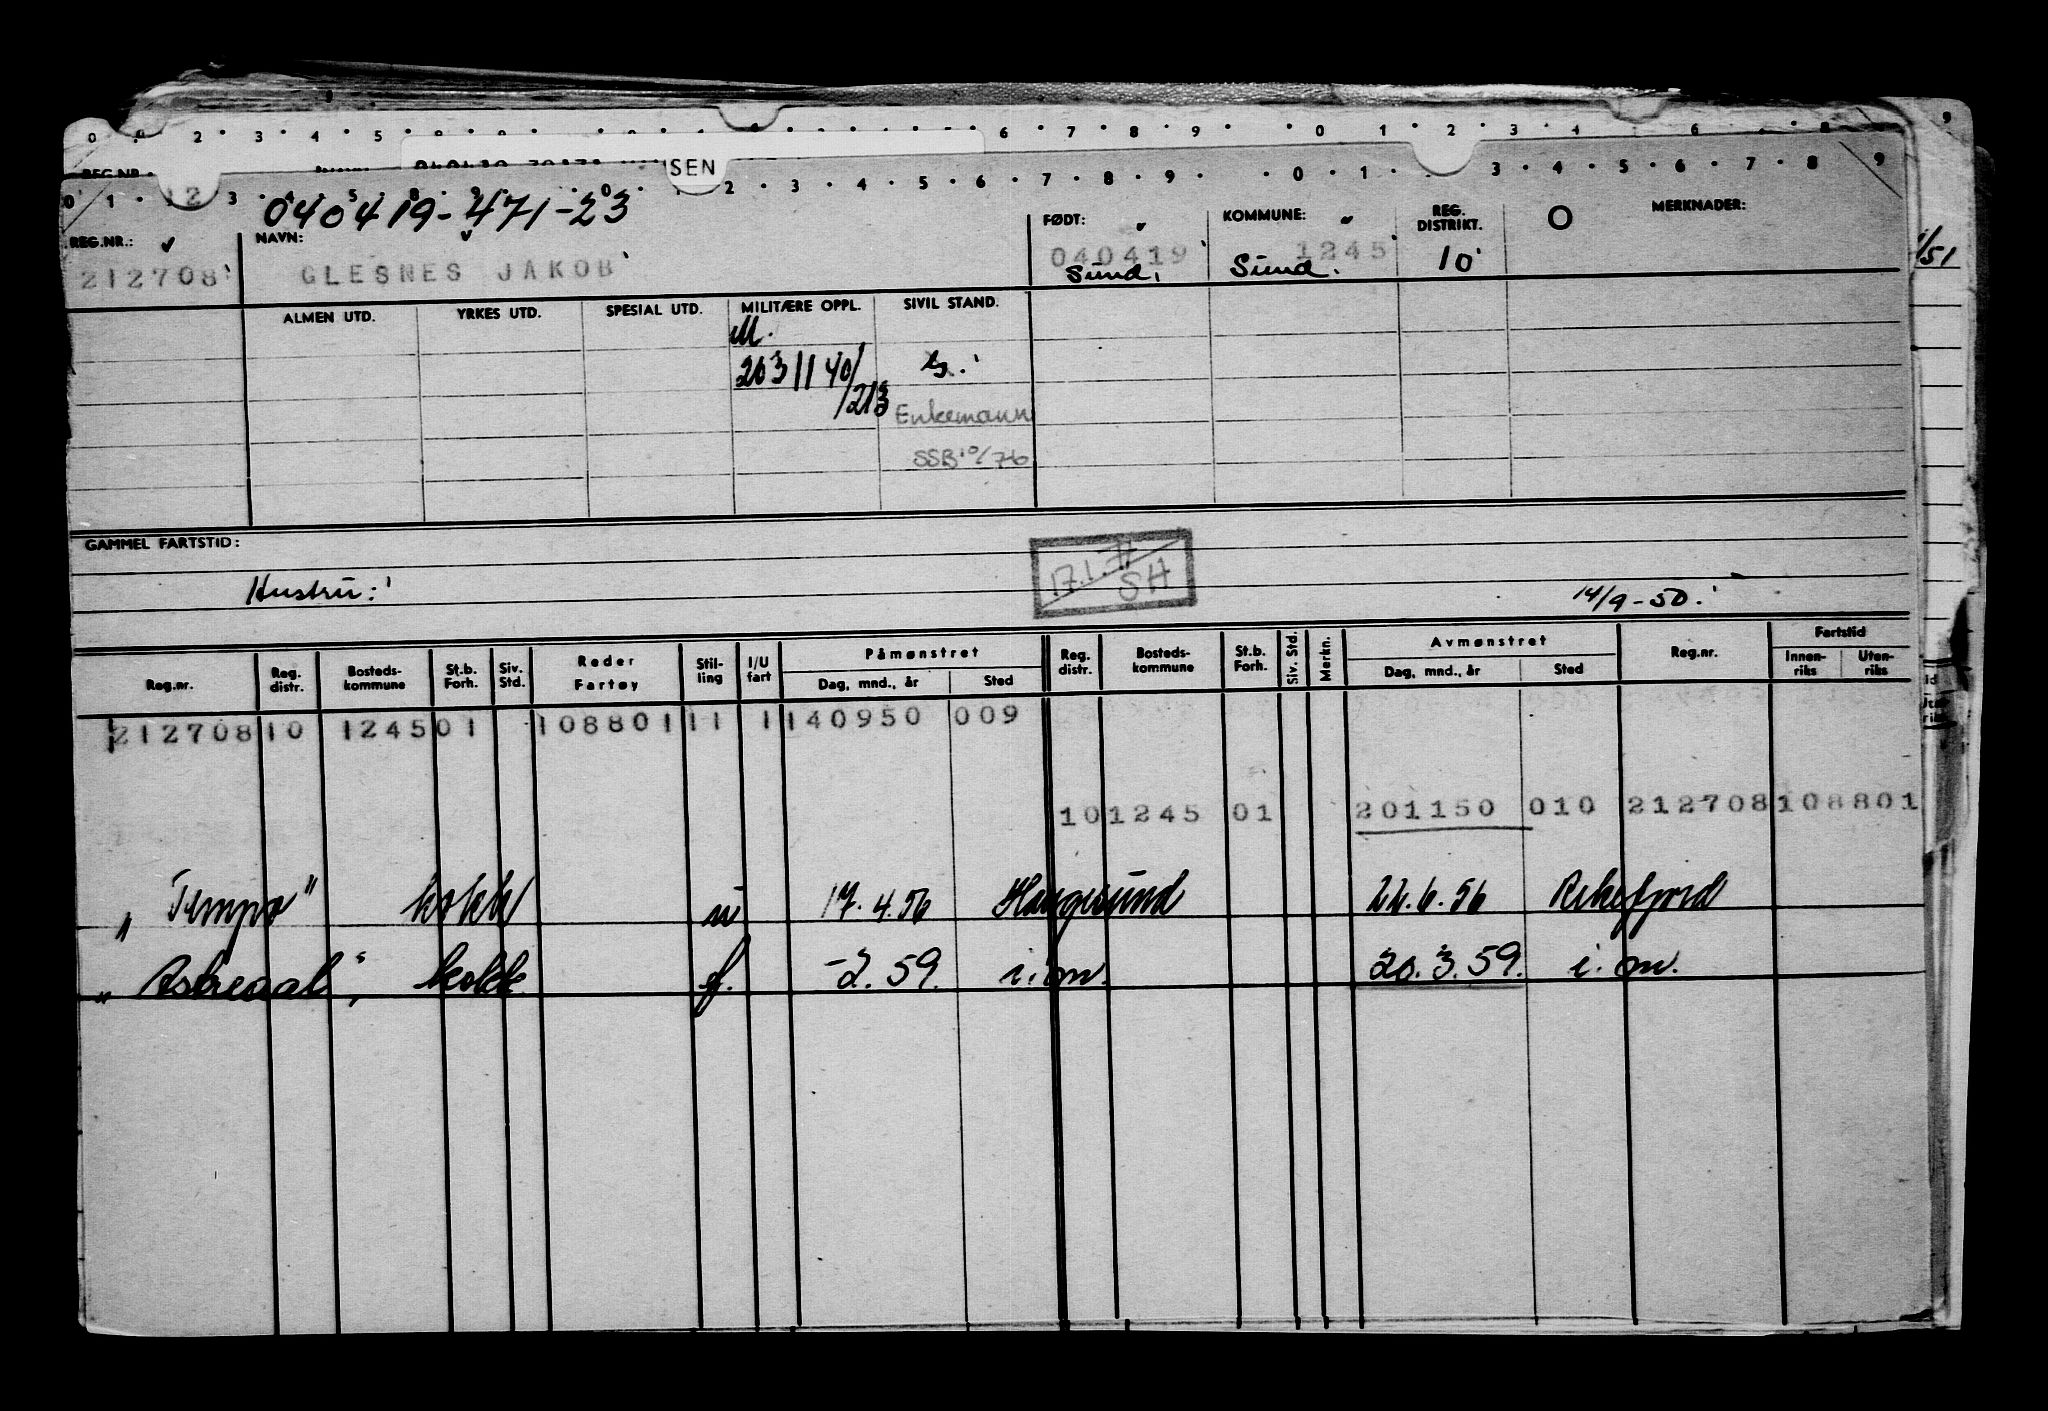 0 · 2 · 3 · 4 · 5 · 6 · 7 · 8 · 9 · 0 1 · 2 · 3 · 4 6 8 9
SEN
0 1 · 12 3 · 4 5 8 9 · 0 1 2 · 3 · 4 · 5 · 6 · 7 · 8 · 9 · 0 · 1 · 3 · 4 · 5 · 6 · 7 · 8 9
040419-471-23
REG.NR.: NAVN: FØDT: KOMMUNE: REG. DISTRIKT. O MERKNADER:
212708 GLESNES JAKOB 040419 1245 10 /51
Sund. Sund.
ALMEN UTD. YRKES UTD. SPESIAL UTD. MILITÆRE OPPL. SIVIL STAND.
M.
203 11 40/213 g.
Enkemann
SSB 10/76
GAMMEL FARTSTID:
17.1.77 SH
Hustru: 14/9-50.
Reg.nr. Reg. distr. Bosteds-kommune St.b. Forh. Siv. Std. Reder Fartøy Stil-ling I/U fart Påmønstret Dag, mnd., år Sted Reg. distr. Bosteds-kommune St.b. Forh. Siv. Std. Merkn. Avmønstret Dag, mnd., år Sted Reg.nr. Fartstid Innen-riks Uten-riks
212708 10 1245 01 108801 11 1 140950 009
10 1245 01 201150 010 212708 108801
„Tempo" kokk u 17.4.56 Haugesund 22.6.56 Rekefjord
„Astreaal" kokk f. -2.59. i. om. 20.3.59. i. om.